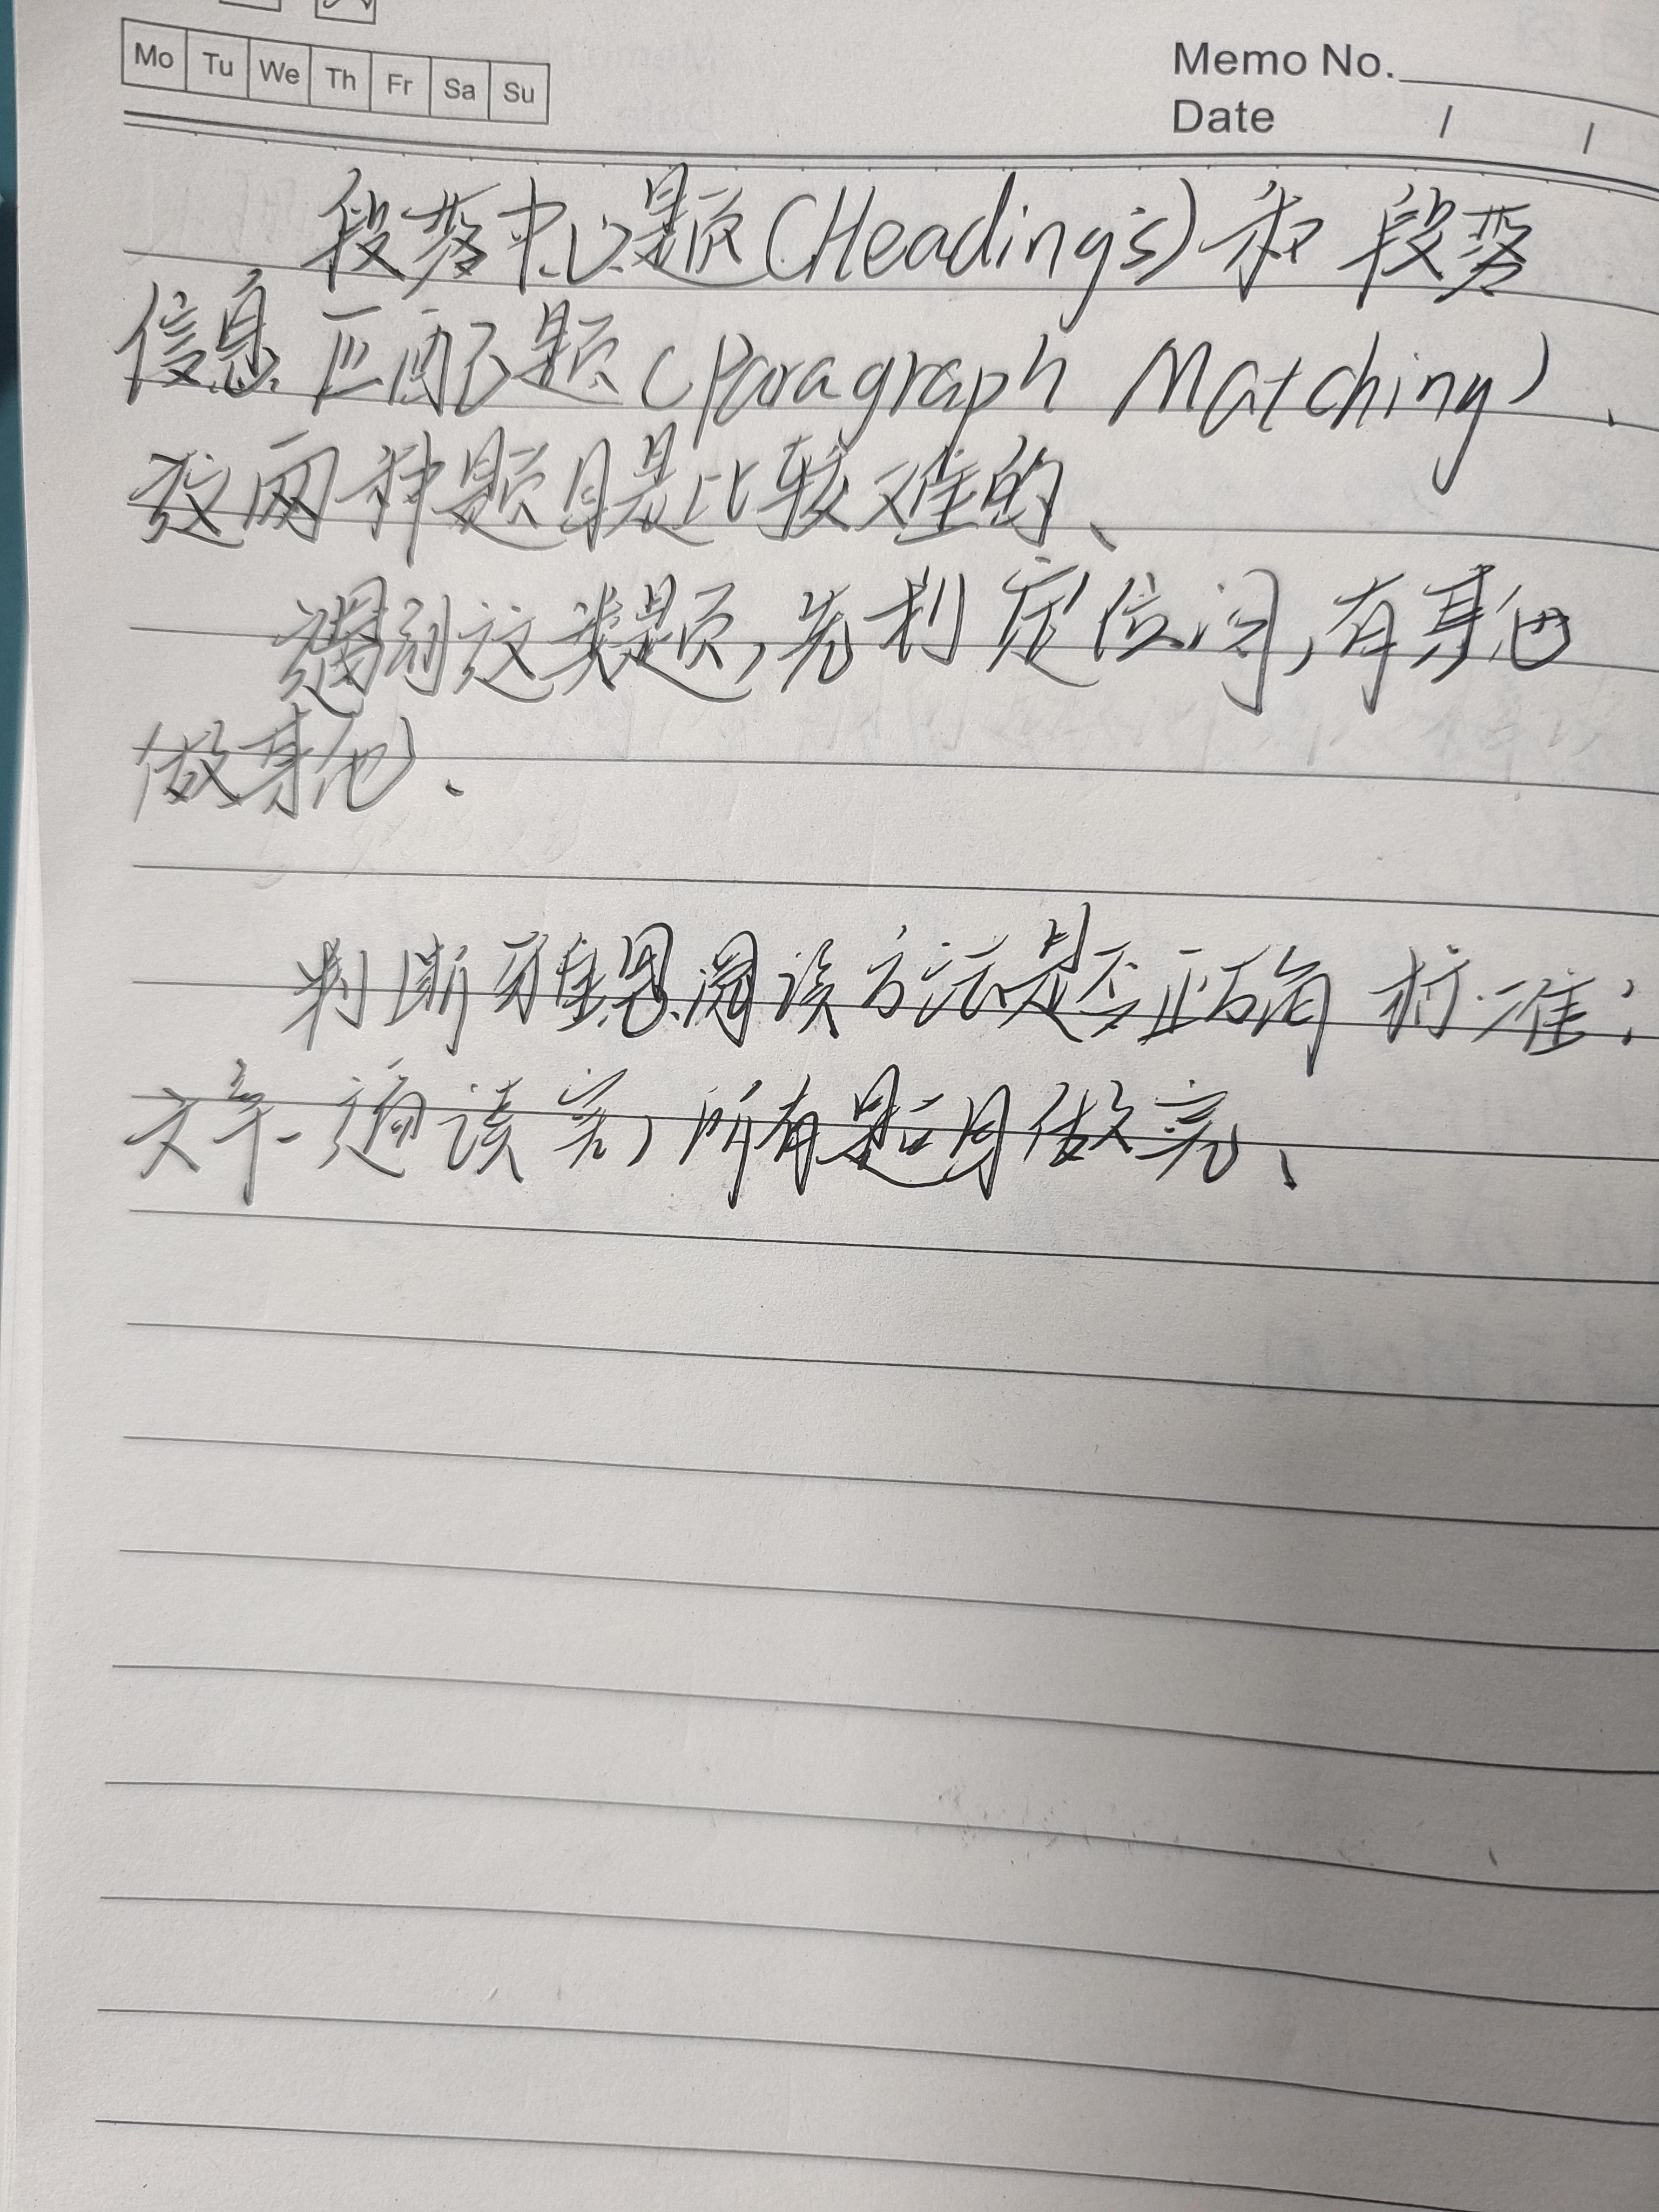 Mo Tu We Th Fr Sa Su
Memo No.
Date / /
段落中心题(Headings)和段落
信息匹配题(Paragraph Matching)、
这两种题目是比较难的、
遇到这类题,先判定位词,有其他
做其他、
判断雅思阅读方法是否正确标准:
文章一遍读完,所有题目做完、